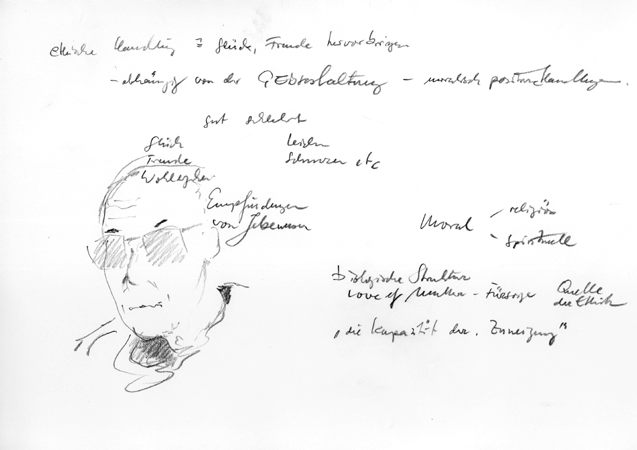 ethische Handlung = Glück, Freude hervorbringen
- abhängig von der Geisteshaltung - moralisch positive Handlungen.
gut schlecht
Glück Leiden
Freude Schmerzen etc
Wohlergehen
Empfindungen
von Lebewesen
Moral religiös
spirituell
biologische Struktur
Love of Mother - Fürsorge Quelle
der Ethik
"die Kapazität der Zuneigung"